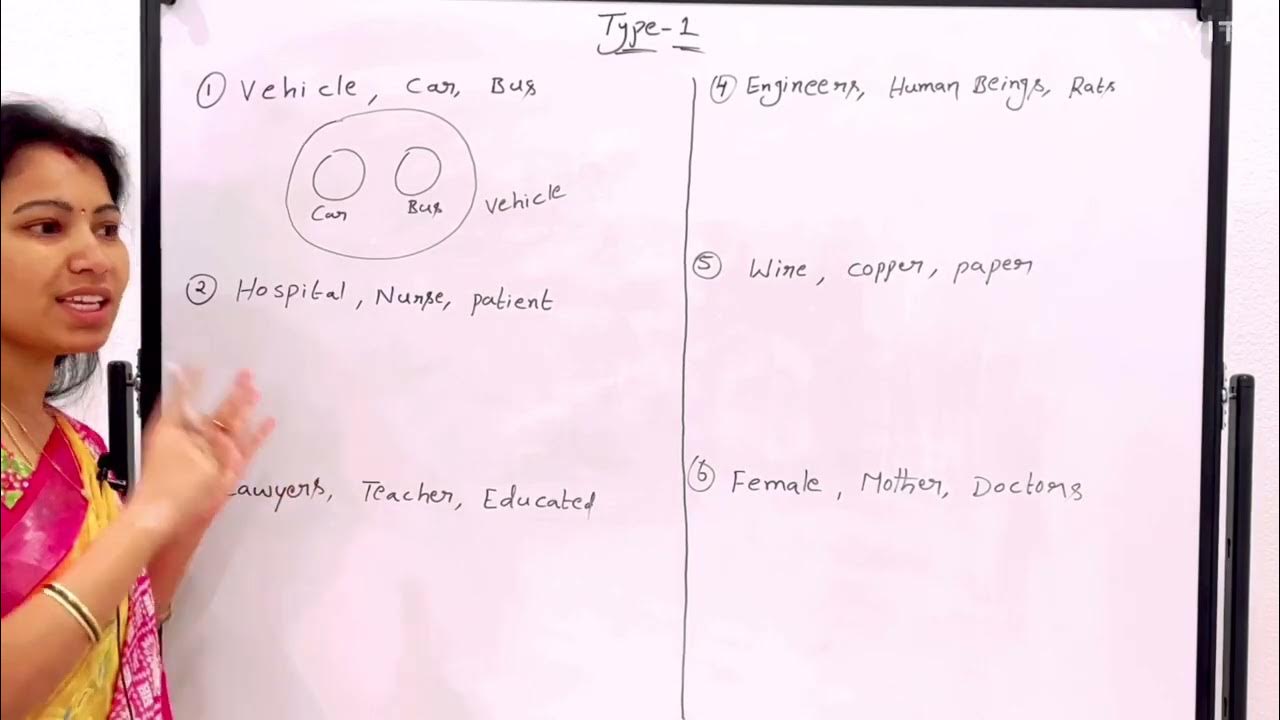 Type-1
① Vehicle, Car, Bus
Car
Bus
Vehicle
② Hospital, Nurse, patient
Lawyers, Teacher, Educated
④ Engineers, Human Beings, Rats
⑤ Wire, copper, paper
⑥ Female, Mother, Doctors